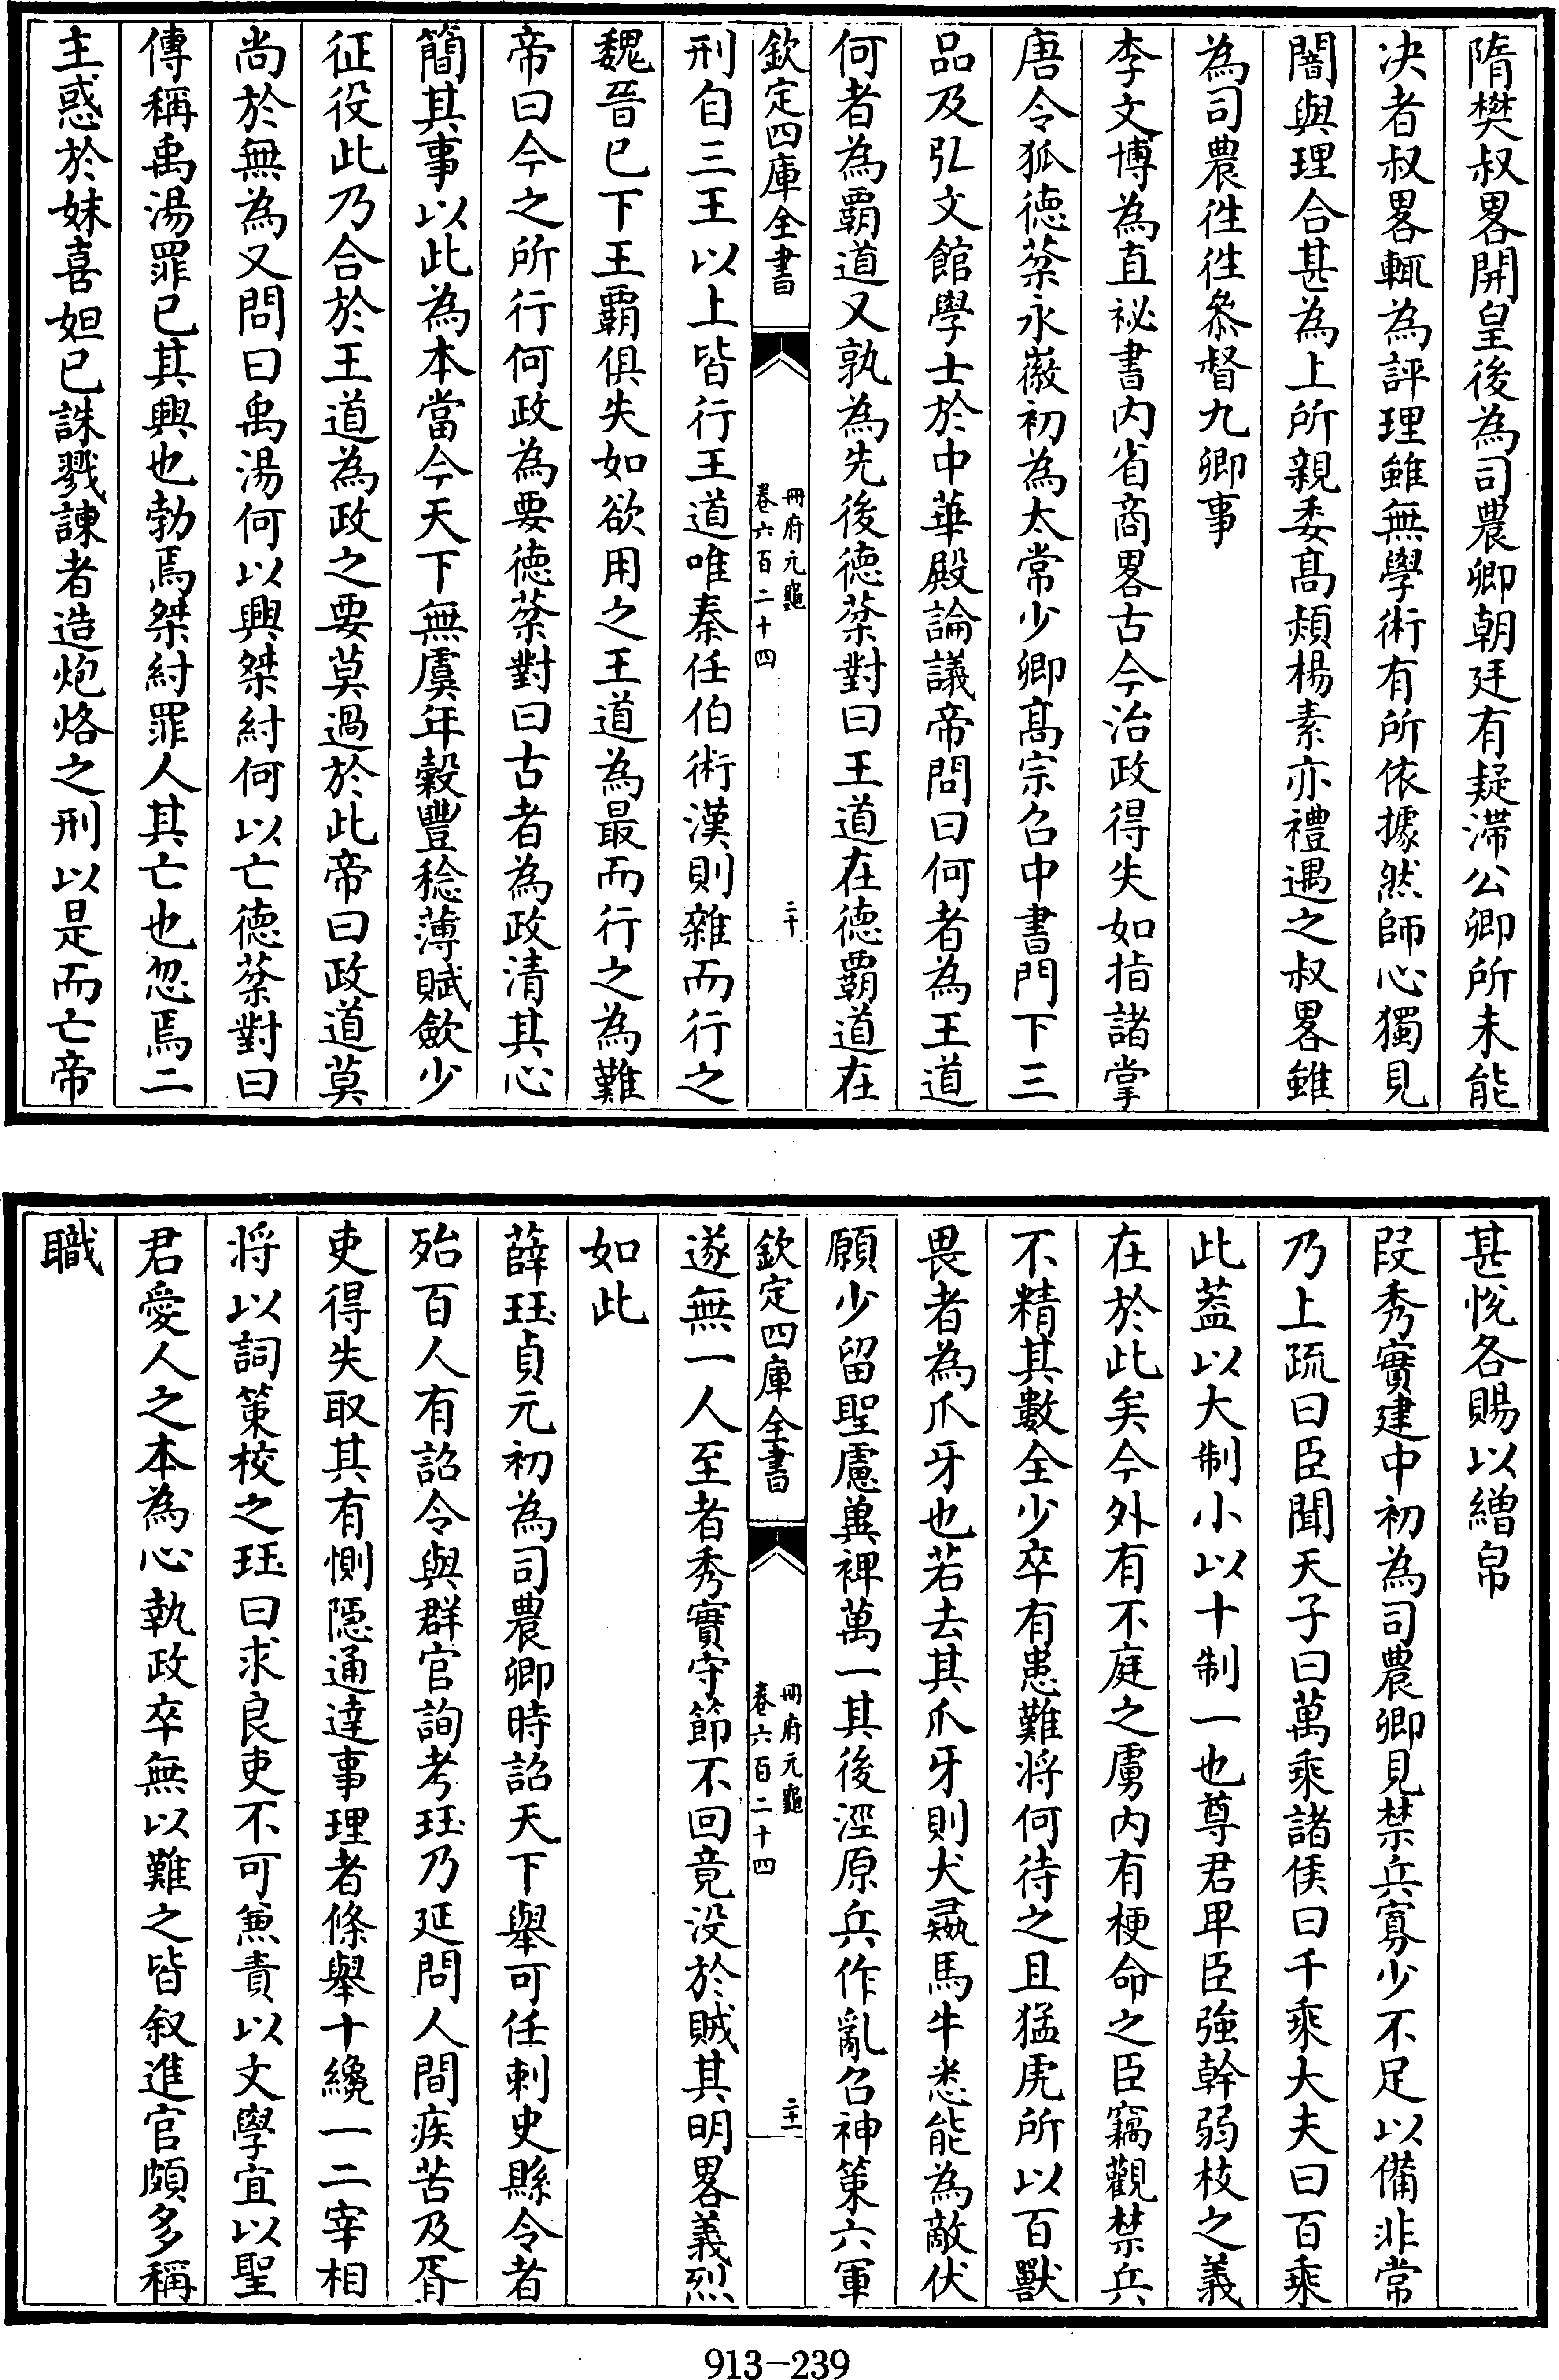 隋樊叔畧開皇後為司農卿朝廷有疑滯公卿所未能
决者叔畧輒為評理雖無學術有所依據然師心獨見
闇與理合甚為上所親委髙熲楊素亦禮遇之叔畧雖
為司農徃徃叅督九卿事
李文博為直祕書内省商畧古今治政得失如指諸掌
唐令狐徳棻永徽初為太常少卿髙宗召中書門下三
品及弘文館學士於中華殿論議帝問曰何者為王道
何者為覇道又孰為先後徳棻對曰王道在徳覇道在
欽定四庫全書
冊府元龜
卷六百二十四
二十
刑自三王以上皆行王道唯秦任伯術漢則雜而行之
魏晉已下王覇俱失如欲用之王道為最而行之為難
帝曰今之所行何政為要徳棻對曰古者為政清其心
簡其事以此為本當今天下無虞年穀豐稔薄賦歛少
征役此乃合於王道為政之要莫過於此帝曰政道莫
尚於無為又問曰禹湯何以興桀紂何以亡徳棻對曰
傳稱禹湯罪已其興也勃焉桀紂罪人其亡也忽焉二
主惑於妹喜妲已誅戮諫者造炮烙之刑以是而亡帝
甚悅各賜以繒帛
段秀實建中初為司農卿見禁兵寡少不足以備非常
乃上疏曰臣聞天子曰萬乘諸侯曰千乘大夫曰百乘
此葢以大制小以十制一也尊君卑臣強幹弱枝之義
在於此矣今外有不庭之虜内有梗命之臣竊觀禁兵
不精其數全少卒有患難将何待之且猛虎所以百獸
畏者為爪牙也若去其爪牙則犬彘馬牛悉能為敵伏
願少留聖慮冀裨萬一其後涇原兵作亂召神策六軍
欽定四庫全書
冊府元龜
卷六百二十四
二十一
遂無一人至者秀實守節不回竟没於賊其明畧義烈
如此
薛珏貞元初為司農卿時詔天下舉可任刺史縣令者
殆百人有詔令與群官詢考珏乃延問人間疾苦及胥
吏得失取其有惻隱通達事理者條舉十纔一二宰相
将以詞策校之珏曰求良吏不可兼責以文學宜以聖
君愛人之本為心執政卒無以難之皆叙進官頗多稱
職
913-239